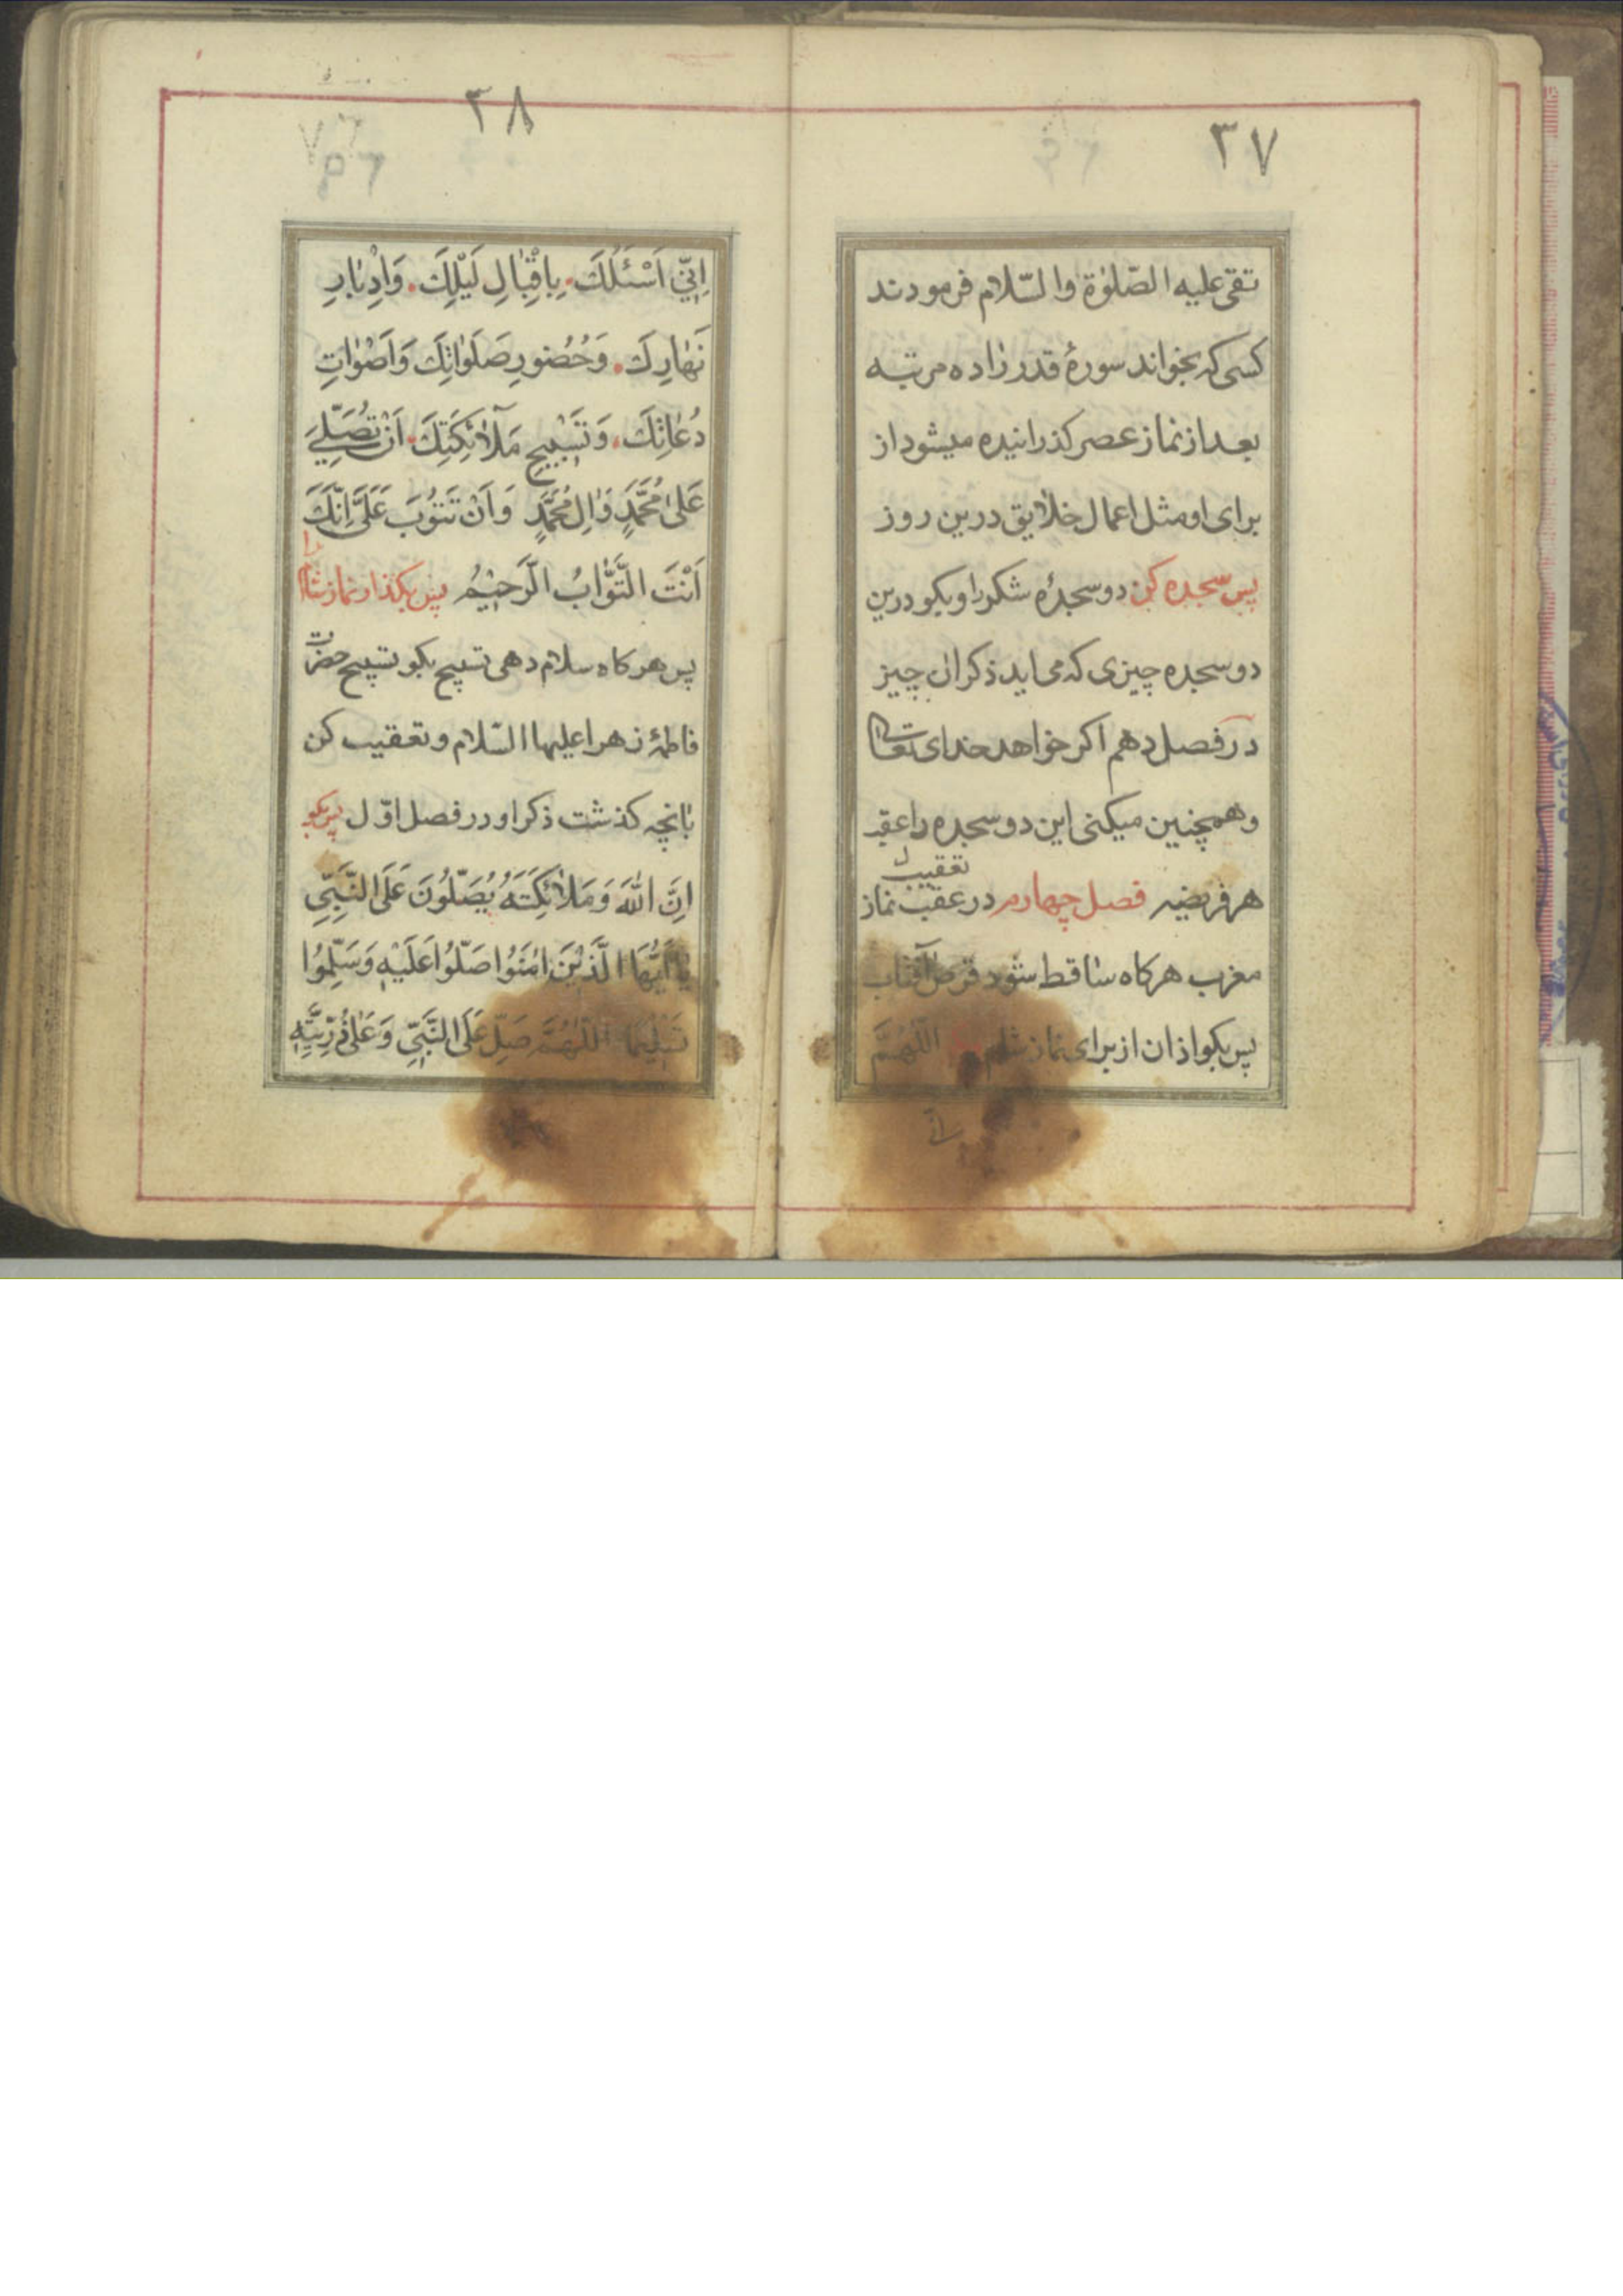 ۳۷
تقی علیه الصّلوٰة والسّلام فرمودند
کسی که بخواند سورهٔ قدر را ده مرتبه
بعد از نماز عصر کذرانیده میشود از
برای او مثل اعمال خلایق درین روز
پس سجده کن دو سجدهٔ شکر را و بکو درین
دو سجده چیزی که می اید ذکر ان چیز
در فصل دهم اکر خواهد خدای تعالی
و همچنین میکنی این دو سجده را عقب
تعقیب
هر فریضه فصل چهارم در عقب نماز
مغرب هرکاه ساقط شود قرص آفتاب
پس بکو اذان از برای نماز شام اللّهمّ
انّی
۳۸
اِنّی اَسْئَلُكَ بِاِقْبٰالِ لَیْلِكَ وَاِدْبٰارِ
نَهٰارِكَ وَحُضُورِ صَلَوٰاتِكَ وَاَصْوٰاتِ
دُعٰاتِكَ وَتَسْبیٖحِ مَلٰآئِكَتِكَ اَنْ تُصَلِّیَ
عَلیٰ مُحَمَّدٍ وَاٰلِ مُحَمَّدٍ وَاَنْ تَتُوبَ عَلَیَّ اِنَّكَ
اَنْتَ التَّوّٰابُ الرَّحیٖمُ پس بکذار نماز شام را
پس هرکاه سلام دهی تسبیح بکو تسبیح حضرت
فاطمهٔ زهرا علیها السّلام و تعقیب کن
بانچه کذشت ذکر او در فصل اوّل پس بکو
اِنَّ اللهَ وَمَلٰائِكَتَهُ یُصَلُّونَ عَلَی النَّبِیِّ
یٰا اَیُّهَا الَّذیٖنَ اٰمَنُوا صَلُّوا عَلَیْهِ وَسَلِّمُوا
تَسْلیٖمًا اَللّٰهُمَّ صَلِّ عَلَی النَّبِیِّ وَعَلیٰ ذُرِّیَّتِهِ